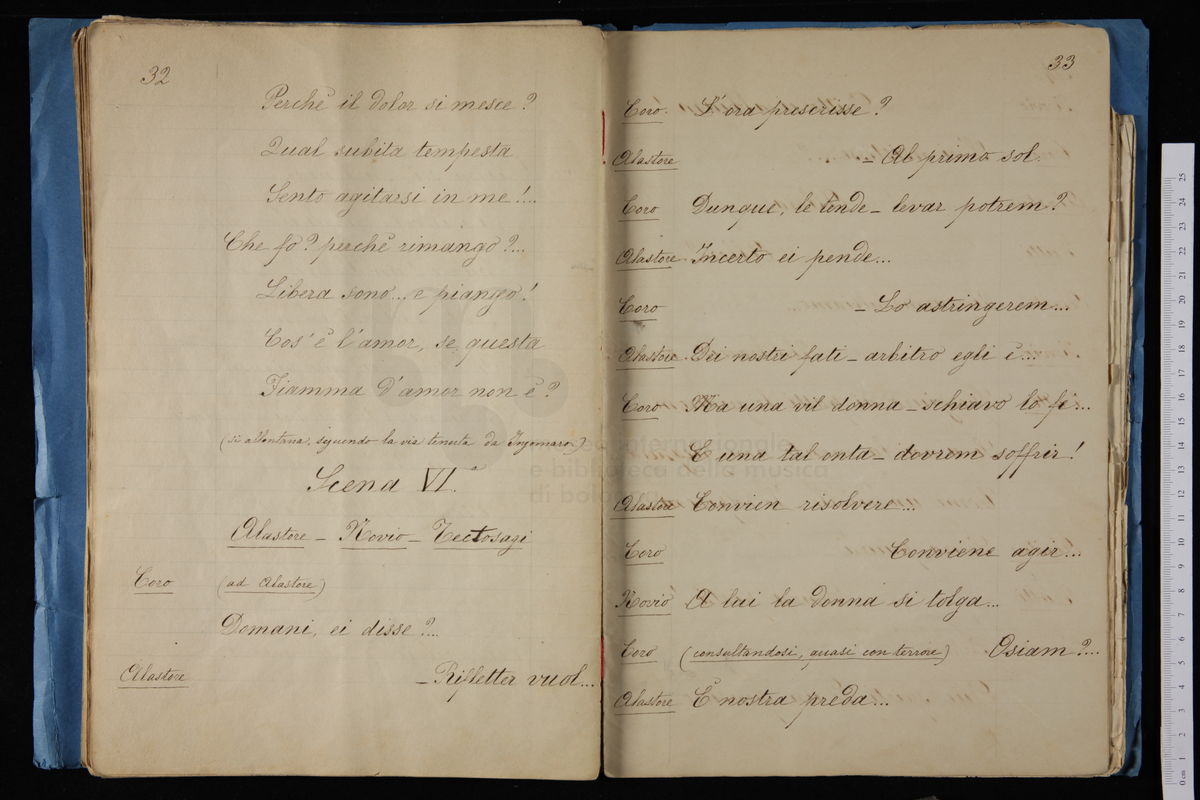 32
Perchè il dolor si mesce?
Qual subita tempesta
Sento agitarsi in me!...
Che fo? perchè rimango?...
Libera sono... e piango!
Cos'è l'amor, se questa
Fiamma d'amor non è?
(si allontana, seguendo la via tenuta da Ingomaro)
Scena VI.
Alastore - Novio - Tectosagi
Coro (ad Alastore)
Domani, ei disse?...
Alastore - Rifletter vuol...
33
Coro. L'ora prescrisse?
Alastore - Al primo sol.
Coro Dunque, le tende - levar potrem?
Alastore Incerto ei pende...
Coro - Lo astringerem...
Alastore Dei nostri fati - arbitro egli è...
Coro Ma una vil donna - schiavo lo fè...
E una tal onta - dovrem soffrir!
Alastore Convien risolvere...
Coro Conviene agir...
Novio A lui la donna si tolga...
Coro (consultandosi, quasi con terrore) Osiam?...
Alastore È nostra preda...
museo internazionale
e biblioteca della musica
di bologna
0 cm 1 2 3 4 5 6 7 8 9 10 11 12 13 14 15 16 17 18 19 20 21 22 23 24 25